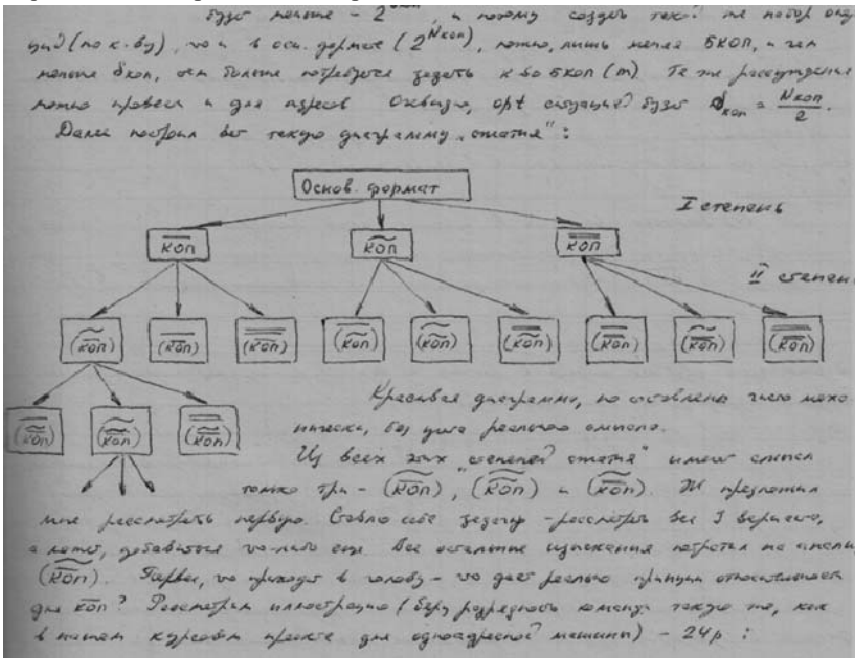 будет меньше – 2 , и потому создать такой же набор опе-
ций (по к-ву), что и в осн. формате (2^Nкоп), можно, лишь меняя БКОП, и чем
меньше δкоп, тем больше потребуется задать к-во БКОП (m). Те же рассуждения
можно провести и для адресов. Очевидно, opt ситуацией будет δкоп = Nкоп/2.
Далее построил вот такую диаграмму „сжатия“:
Основ. формат
I степень
КОП КОП КОП
II степень
(КОП) (КОП) (КОП) (КОП) (КОП) (КОП) (КОП) (КОП) (КОП)
(КОП) (КОП) (КОП)
Красивая диаграмма, но составлена чисто меха-
нически, без учета реального смысла.
Из всех этих „степеней сжатия“ имеют смысл
только три – (КОП), (КОП) и (КОП). Ж предложил
мне рассмотреть первую. Ставлю себе задачу – рассмотреть все 3 варианта,
а может, добавиться что-либо еще. Все остальные изыскания потратил на анализ
(КОП). Первое, что приходит в голову – что дает реально принцип относительности
для КОП? Рассмотрим иллюстрацию (беру разрядность команды такую же, как
в нашем курсовом проекте для одноадресной машины) – 24р: